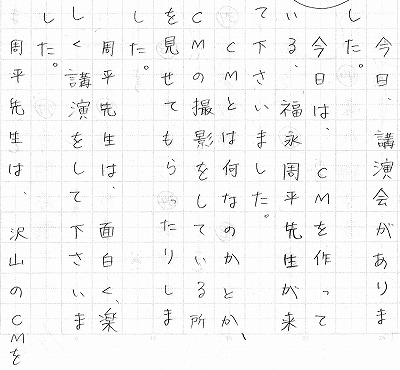 今日、講演会がありま
した。
今日は、CMを作って
いる、福永周平先生が来
て下さいました。
CMとは何なのかとか、
CMの撮影をしている所
を見せてもらったりしま
した。
周平先生は、面白く、楽
しく講演をして下さいま
した。
周平先生は、沢山のCMを